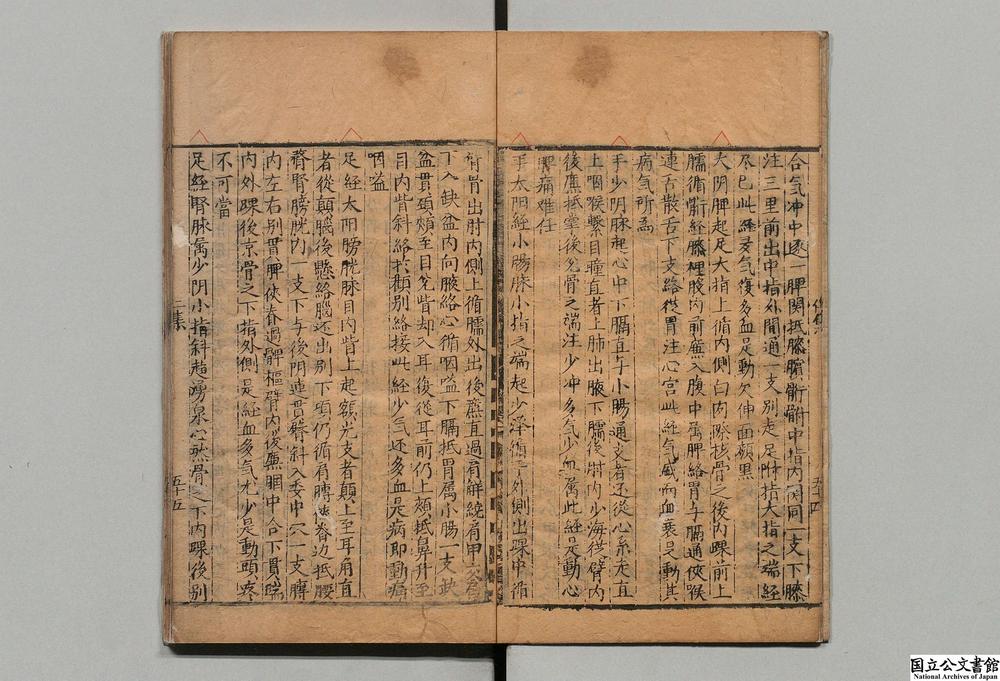 合气冲中逐一脾関抵膝臏䯒胕中指内関同一支下膝
注三里前出中指外間通一支别走足跗指大指之端経
尽已此経多气復多血是動欠伸面顔黒
大阴脾起足大指上循内側白肉際核骨之後内踝前上
臑循䯒経膝裡股内前廉入腹中属脾絡胃与膈通侠喉
連舌散舌下支絡從胃注心宫此経气盛而血衰是動其
病气所為
手少阴脉起心中下膈直与小腸通支者还從心系走直
上咽喉繋目瞳直者上肺出腋下臑後肘内少海從臂内
後廉抵掌後兊骨之端注少冲多气少血属此経是動心
脾痛难任
手太阳経小腸脉小指之端起少泽循手外側出踝中循
臂骨出肘内側上循臑外出後廉直過肩解繞肩甲交肩
下入缺盆内向腋絡心循咽嗌下膈抵胃属小腸一支缺
盆貫頚頰至目兊眥却入耳復從耳前仍上頰抵鼻升至
目内眥斜絡於顴别絡接此経少气还多血是病即動痛
咽嗌
足経太阳膀胱脉目内眥上起額尖支者顛上至耳角直
者從顛腦後懸絡腦还出别下項仍循肩膊侠脊边抵腰
膂腎膀胱内一支下与後阴連貫臀斜入委中穴一支髆
内左右别貫胛侠脊過髀樞臂内後廉膕中合下貫腨
内外踝後京骨之下指外側是経血多气尤少是動頭疼
不可當
足経腎脉属少阴小指斜趋湧泉心然骨之下内踝後别
二集
五十五
五十四
国立公文書館
National Archives of Japan